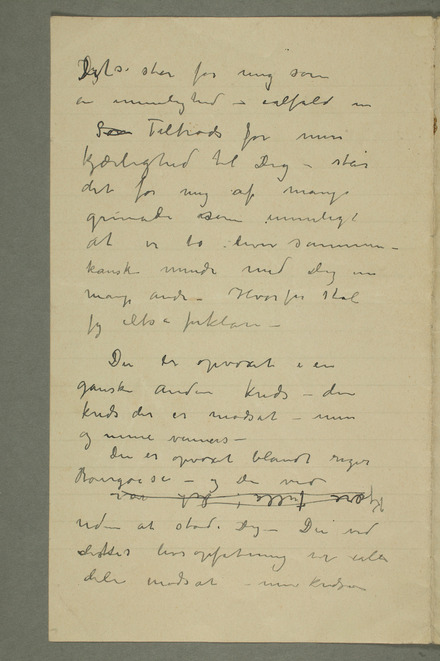 står for mig som
en umulighed – ialfald nu
Som Tiltrods for min
kjærlighed til Dig – står
det for mig af mange
grunde som umuligt
at vi to bliver sammen –
kanske mindre med Dig en
mange andre – Hvorfor skal
jeg altså forklare –
Du er opvoxt i en
ganske anden kreds – den
kreds der er modsat – min
og mine venners –
Du er opvoxt blandt riges
Bourgoisi – og Du ved
uden at støde Dig – Du ved
livsopfatning er
modsat – min kreds